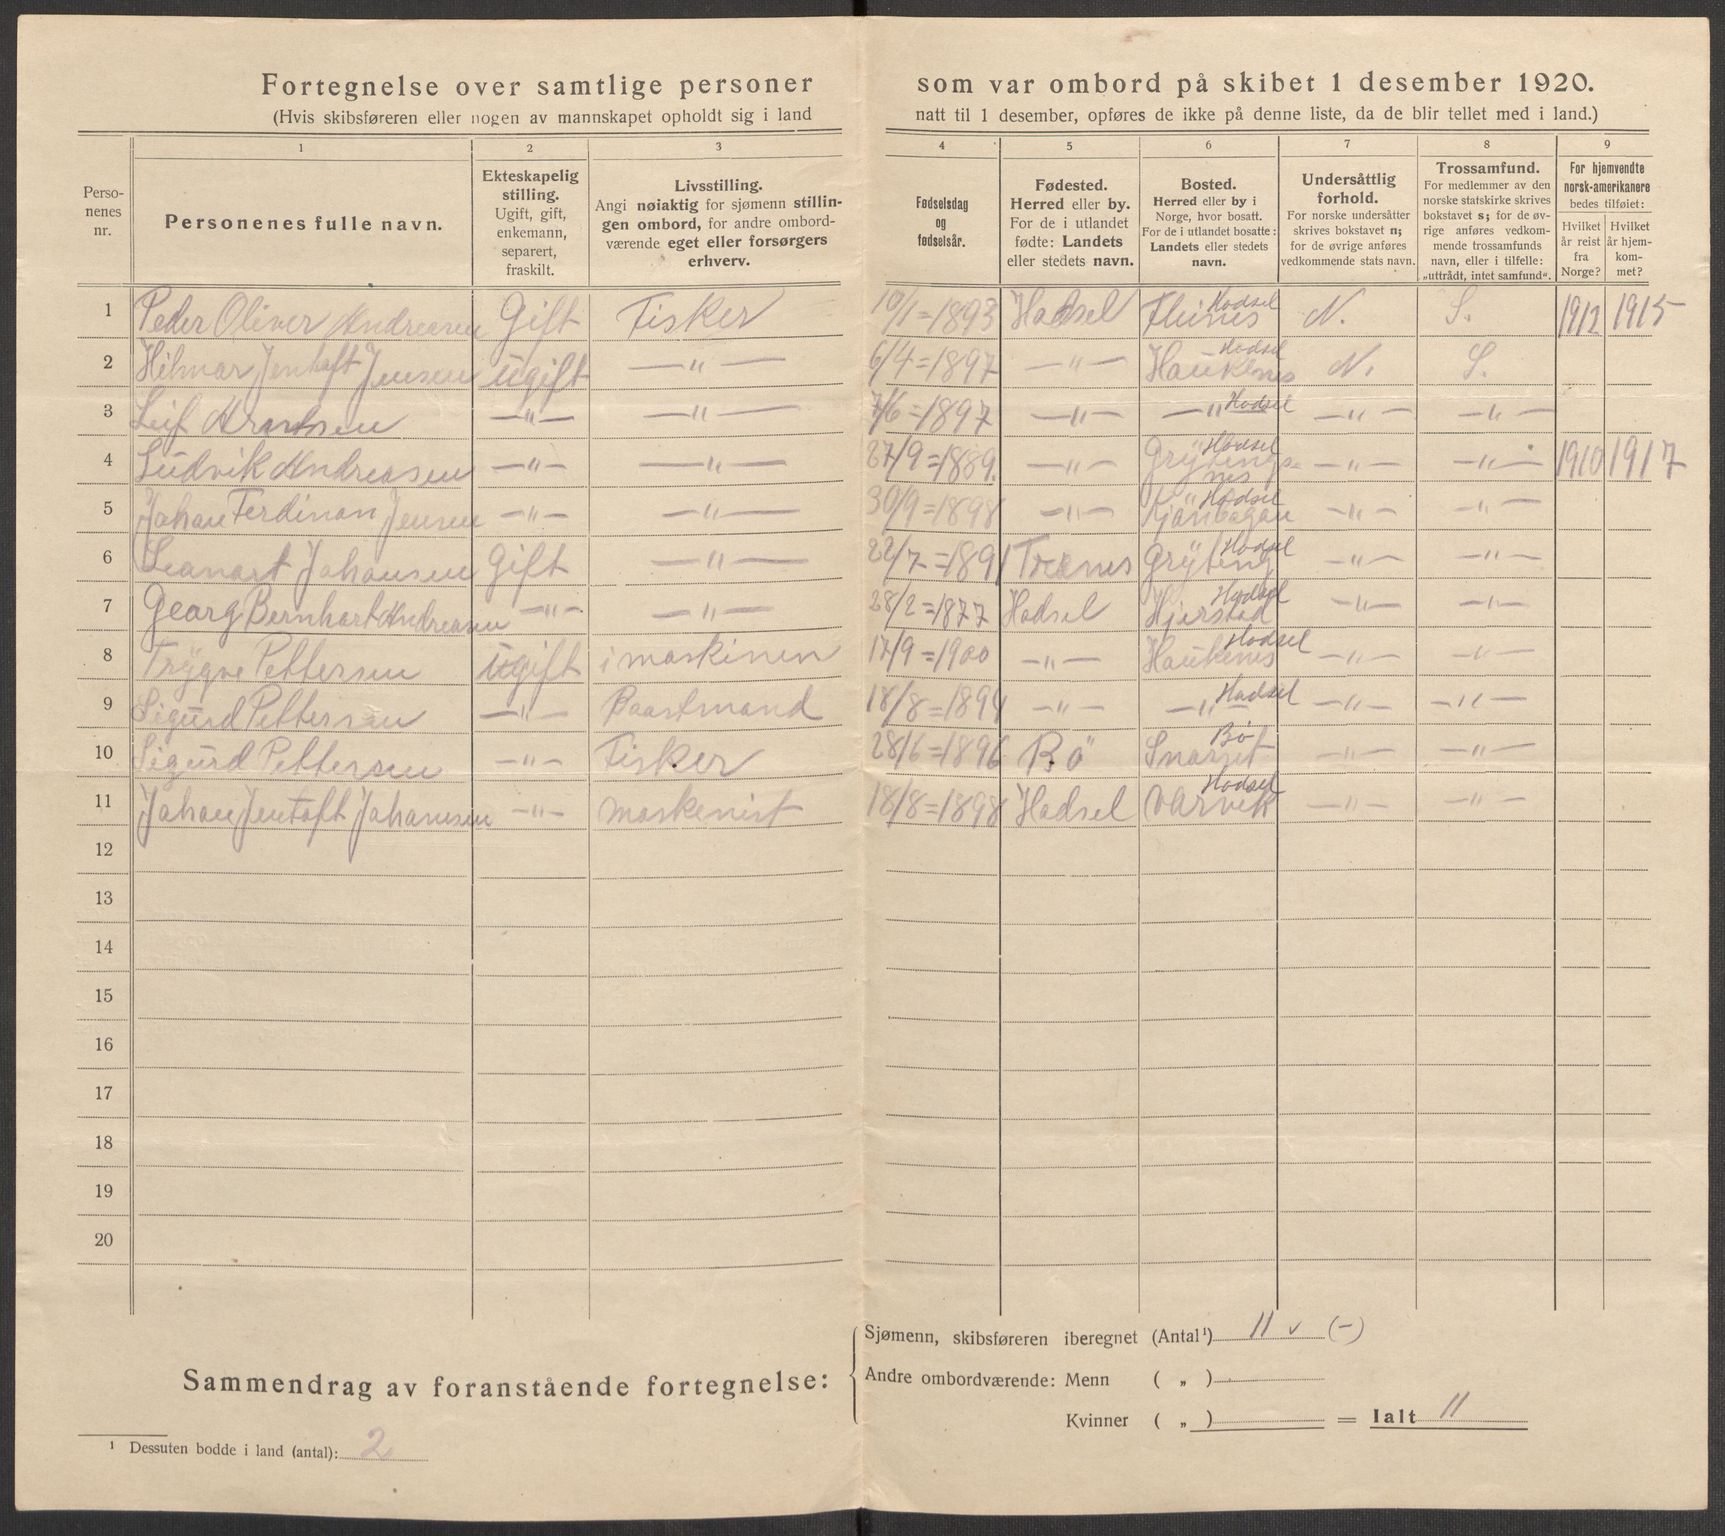 Fortegnelse over samtlige personer som var ombord på skibet 1 desember 1920.
(Hvis skibsføreren eller nogen av mannskapet opholdt sig i land natt til 1 desember, opføres de ikke på denne liste, da de blir tellet med i land.)
1 2 3 4 5 6 7 8 9
Perso-
nenes
nr.
Personenes fulle navn.
Ekteskapelig
stilling.
Ugift, gift,
enkemann,
separert,
fraskilt.
Livsstilling.
Angi nøiaktig for sjømenn stillin-
gen ombord, for andre ombord-
værende eget eller forsørgers
erhverv.
Fødselsdag
og
fødselsår.
Fødested.
Herred eller by.
For de i utlandet
fødte: Landets
eller stedets navn.
Bosted.
Herred eller by i
Norge, hvor bosatt.
For de i utlandet bosatte:
Landets eller stedets
navn.
Undersåttlig
forhold.
For norske undersåtter
skrives bokstavet n;
for de øvrige anføres
vedkommende stats navn.
Trossamfund.
For medlemmer av den
norske statskirke skrives
bokstavet s; for de øv-
rige anføres vedkom-
mende trossamfunds
navn, eller i tilfelle:
„uttrådt, intet samfund“.
For hjemvendte
norsk-amerikanere
bedes tilføiet:
Hvilket
år reist
fra
Norge?
Hvilket
år hjem-
kom-
met?
1 Peder Oliver Andreasen Gift Fisker 10/1=1893 Hadsel Fleines Hadsel N. S. 1912 1915
2 Hilmar Jentoft Jensen Ugift —"— 6/4=1897 —"— Haukenes Hadsel N. S.
3 Leif Arntsen —"— —"— 7/6=1897 —"— —"— Hadsel —"— —"—
4 Ludvik Andreasen —"— —"— 27/9=1889. —"— Grytings-
nes Hadsel —"— —"— 1910 1917
5 Johan Ferdinan Jensen —"— —"— 30/9=1898 —"— Hadsel —"— —"—
6 Leonart Johansen Gift —"— 22/7=1891 Gryting Hadsel —"— —"—
7 Georg Bernhart Andreasen —"— —"— 28/2=1877 Hadsel Hjerstad Hadsel —"— —"—
8 Trygve Pettersen Ugift i maskinen 17/9=1900 —"— Haukenes Hadsel —"— —"—
9 Sigurd Pettersen —"— Baastmand 18/8=1894 —"— —"— Hadsel —"— —"—
10 Sigurd Pettersen —"— Fisker 28/6=1896 Bö Snarset Bø —"— —"—
11 Johan Jentoft Johansen —"— maskenist 18/8=1898 Hadsel Varvik Hadsel —"— —"—
12
13
14
15
16
17
18
19
20
Sammendrag av foranstående fortegnelse:
Sjømenn, skibsføreren iberegnet (Antal¹) 11 v (-)
Andre ombordværende: Menn ( „ )
Kvinner ( „ ) = Ialt 11
¹ Dessuten bodde i land (antal): 2